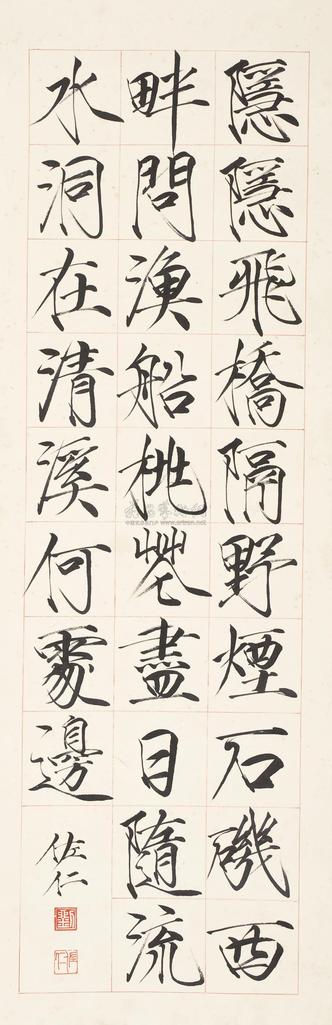 隱隱飛橋隔野煙石磯西
畔問漁船桃花盡日隨流
水洞在清溪何處邊
佐仁